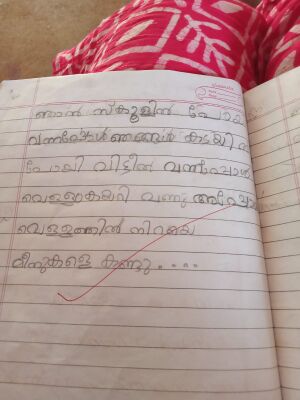 ഞാൻ സ്കൂളിൽ പോയി
വന്നപ്പോൾ ഞങ്ങൾ കടയിൽ
പോയി വിട്ടീൽ വന്നപ്പോൾ
വെള്ളം കയറി വന്നു അപ്പോൾ
വെള്ളത്തിൽ നിറയെ
മീനുകളെ കണ്ടു....